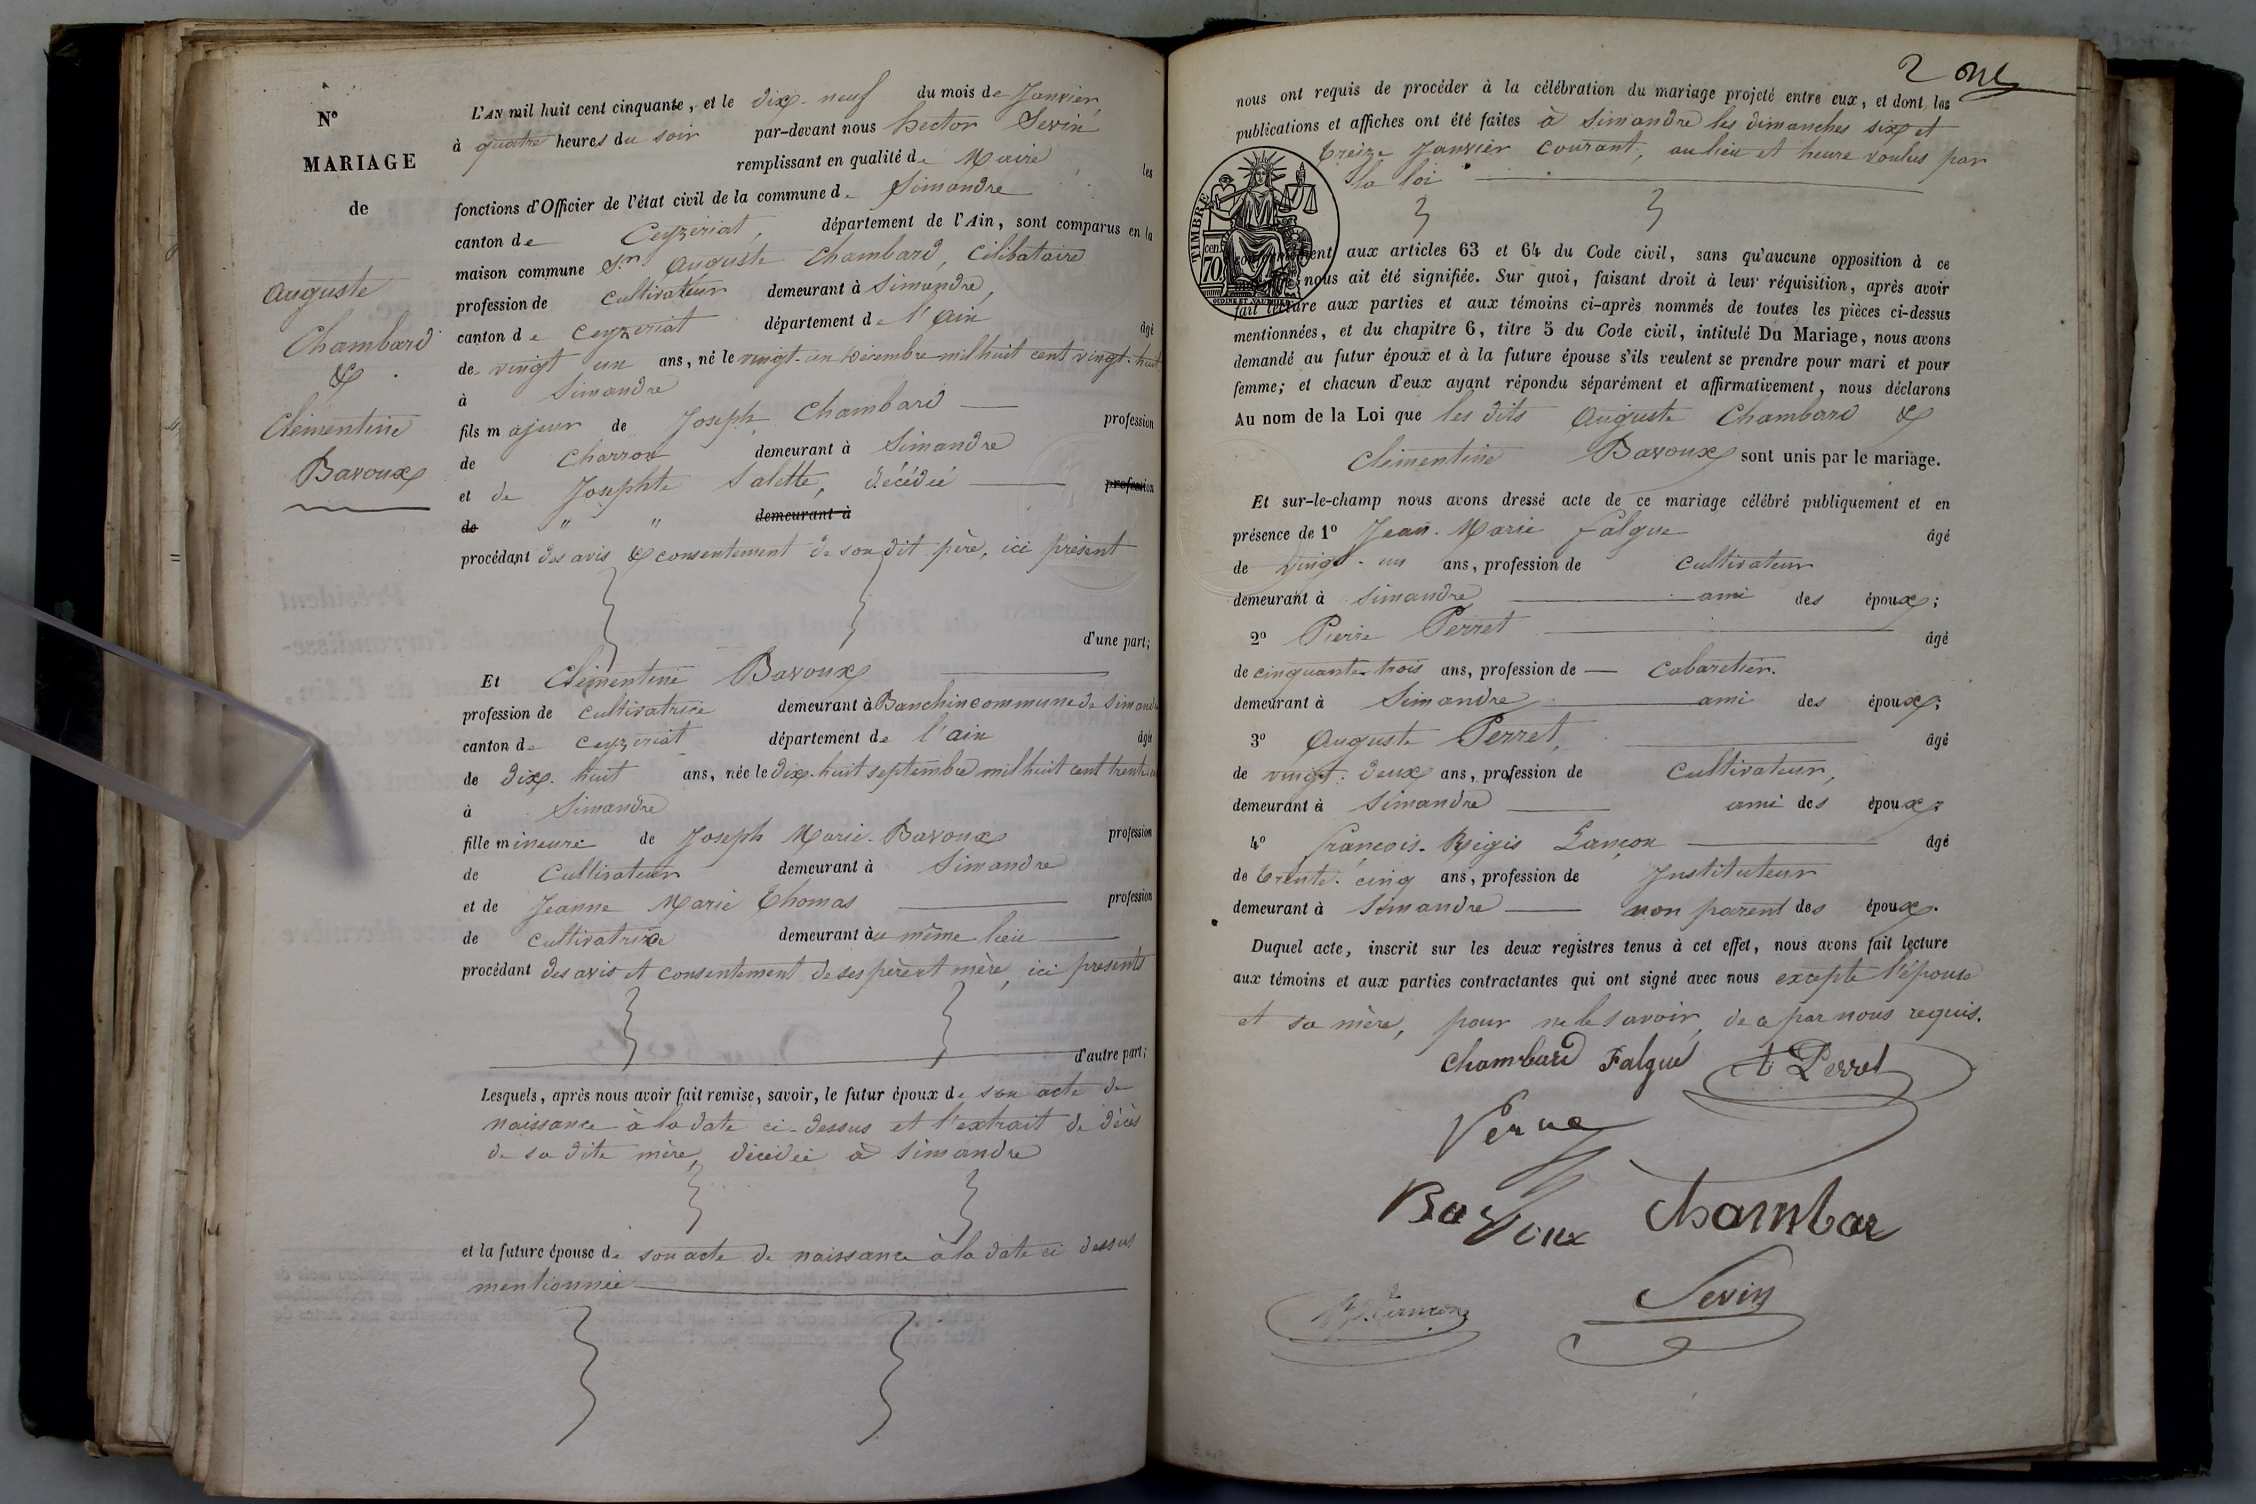 N°
MARIAGE
de
Auguste
Chambard
&
Clémentine
Bavoux
L'AN mil huit cent cinquante, et le dix-neuf du mois de Janvier
à quatre heures du soir par-devant nous hector Sevin
remplissant en qualité de Maire les
fonctions d'Officier de l'état civil de la commune de Simandre
canton de Ceyzeriat, département de l'Ain, sont comparus en la
maison commune Sr Auguste Chambard, célibataire
profession de cultivateur demeurant à Simandre,
canton de Ceyzeriat département de l'Ain âgé
de vingt un ans, né le vingt-un Décembre mil huit cent vingt-huit
à Simandre
fils majeur de Joseph Chambard profession
de Charron demeurant à Simandre
et de Josephte Salette, décédée profession
de " " demeurant à
procédant des avis & consentement de son dit père, ici présent
d'une part;
Et Clémentine Bavoux
profession de cultivatrice demeurant à Banchin commune de Simandre
canton de ceyzeriat département de l'ain âgée
de dix-huit ans, née le dix-huit septembre mil huit cent trente-un
à Simandre
fille mineure de Joseph Marie Bavoux profession
de Cultivateur demeurant à Simandre
et de Jeanne Marie Thomas profession
de cultivatrice demeurant au même lieu
procédant des avis et consentement de ses père et mère, ici présents
d'autre part;
Lesquels, après nous avoir fait remise, savoir, le futur époux de son acte de
naissance à la date ci-dessus et l'extrait de décès
de sa dite mère, décédée à Simandre
et la future épouse de son acte de naissance à la date ci dessus
mentionnée
2
nous ont requis de procéder à la célébration du mariage projeté entre eux, et dont les
publications et affiches ont été faites à Simandre les dimanches six et
treize Janvier courant, au lieu et heure voulus par
la loi
TIMBRE
cen.
70
conformément aux articles 63 et 64 du Code civil, sans qu'aucune opposition à ce
nous ait été signifiée. Sur quoi, faisant droit à leur réquisition, après avoir
fait lecture aux parties et aux témoins ci-après nommés de toutes les pièces ci-dessus
mentionnées, et du chapitre 6, titre 5 du Code civil, intitulé Du Mariage, nous avons
demandé au futur époux et à la future épouse s'ils veulent se prendre pour mari et pour
femme; et chacun d'eux ayant répondu séparément et affirmativement, nous déclarons
Au nom de la Loi que les dits Auguste Chambard &
Clémentine Bavoux sont unis par le mariage.
Et sur-le-champ nous avons dressé acte de ce mariage célébré publiquement et en
présence de 1° Jean-Marie Falgue âgé
de vingt-un ans, profession de Cultivateur
demeurant à Simandre ami des époux;
2° Pierre Perret âgé
de cinquante-trois ans, profession de Cabaretier.
demeurant à Simandre ami des époux;
3° Auguste Perret, âgé
de vingt-deux ans, profession de Cultivateur,
demeurant à Simandre ami des époux;
4° François-Régis Lançon âgé
de trente-cinq ans, profession de Instituteur
demeurant à Simandre non parent des époux.
Duquel acte, inscrit sur les deux registres tenus à cet effet, nous avons fait lecture
aux témoins et aux parties contractantes qui ont signé avec nous excepté l'épouse
et sa mère, pour ne le savoir, de ce par nous requis.
Chambard Falgue Perret
Bavoux Chambar
Sevin